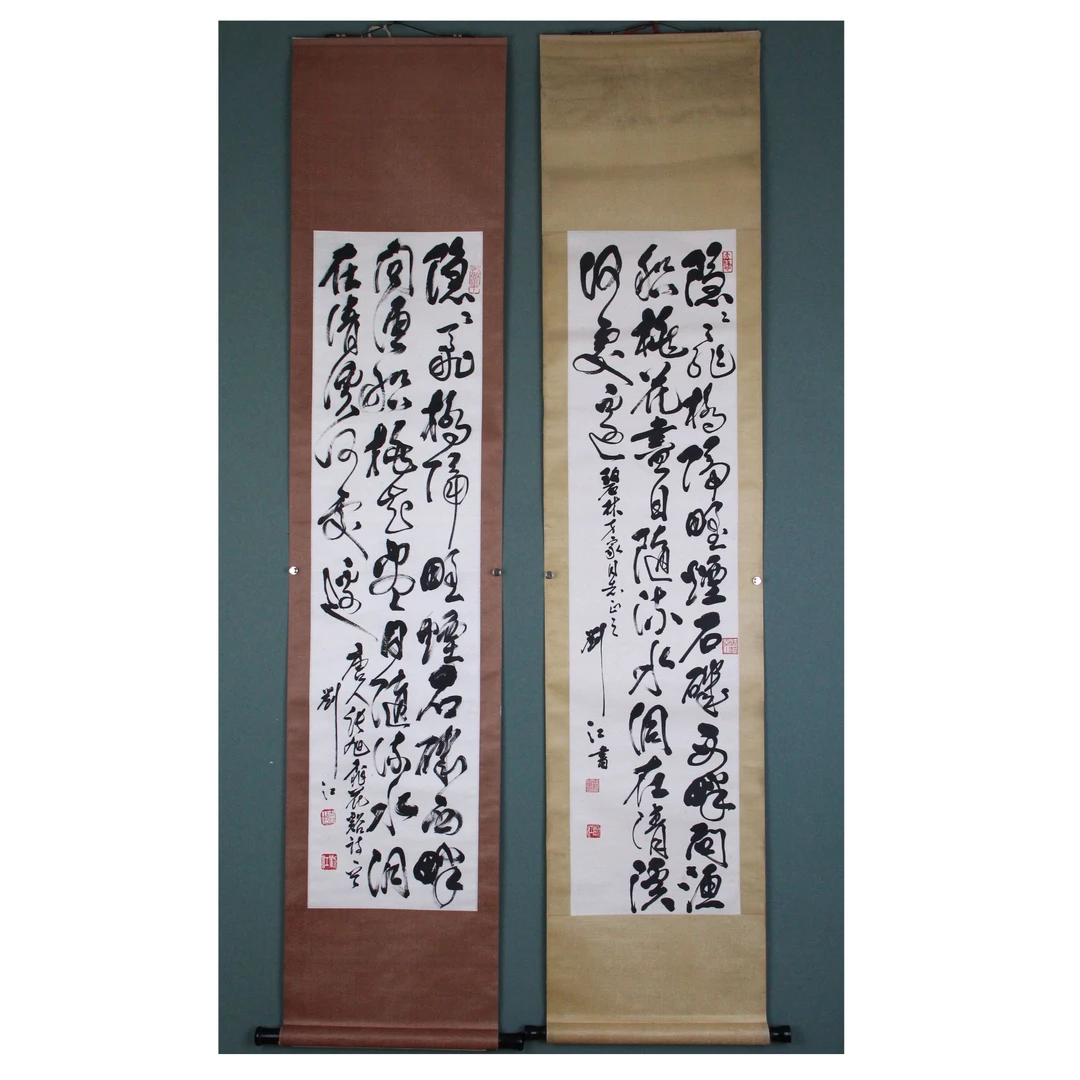 隐〻飛橋隔野煙石磯西畔問漁
船桃花盡日隨流水洞在清溪
何處邊
碧林方家同志正之
劉江書
隐〻飛橋隔野煙石磯西畔
問漁船桃花盡日隨流水洞
在清溪何處邊
唐人張旭桃花谿詩
劉江